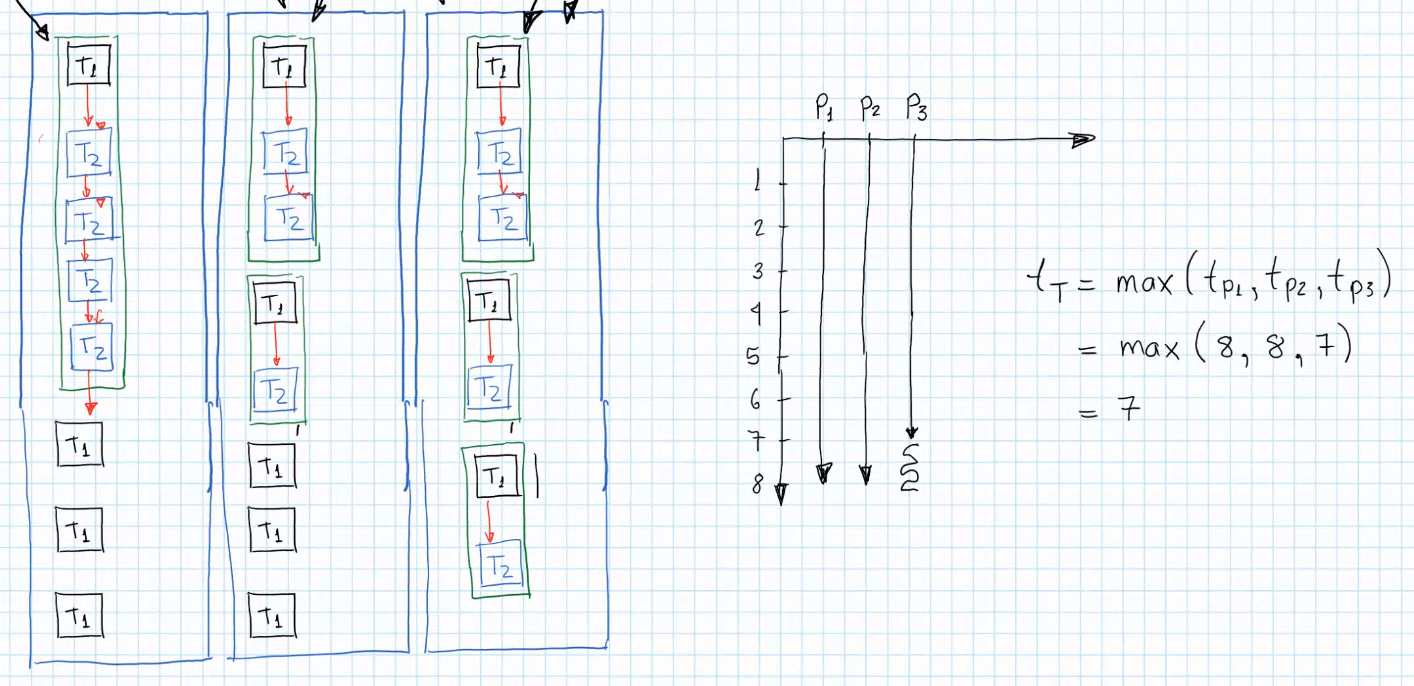 T1 T1 T1
T2 T2 T2
T2 T2 T2
T2
T1 T1
T2
T2 T2
T1
T1 T1
T1 T1
T2
T1 T1
P1 P2 P3
1
2
3
4
5
6
7
8
tT = max(tP1, tP2, tP3)
= max(8, 8, 7)
= 7